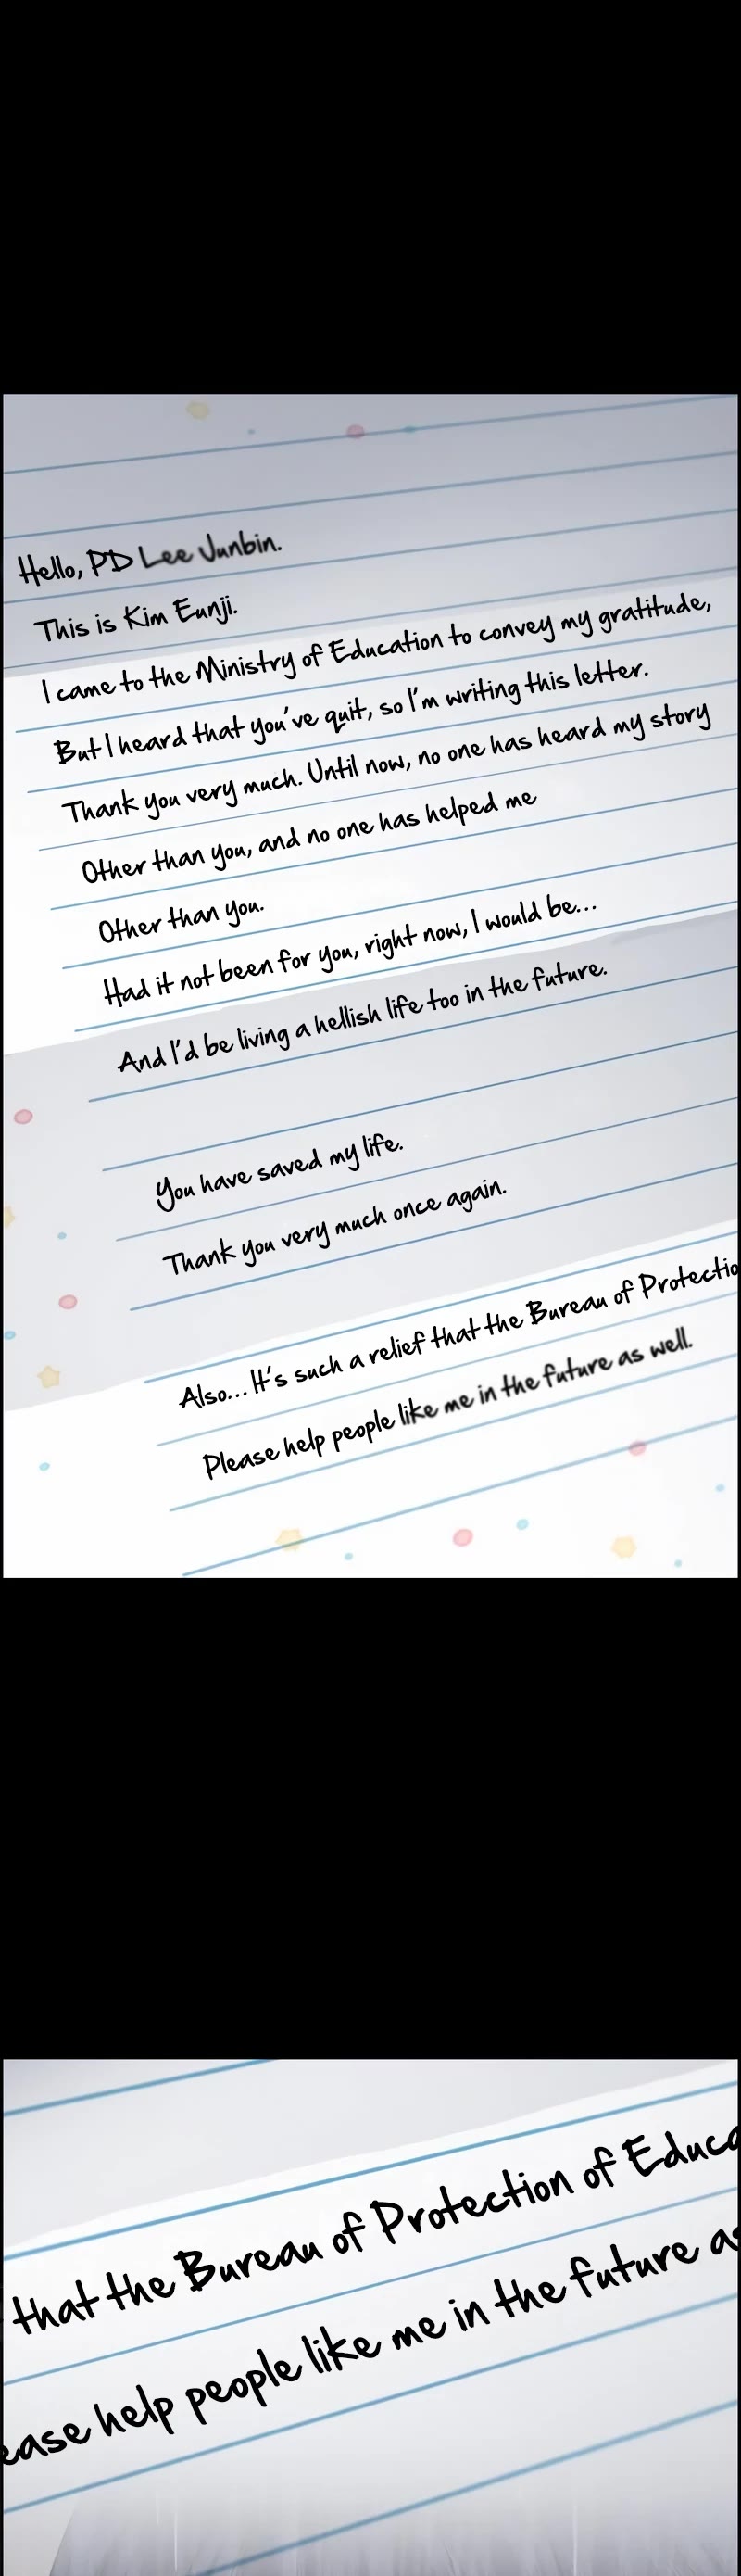 Hello, PD Lee Junbin.
This is Kim Eunji.
I came to the Ministry of Education to convey my gratitude,
But I heard that you've quit, so I'm writing this letter.
Thank you very much. Until now, no one has heard my story
Other than you, and no one has helped me
Other than you.
Had it not been for you, right now, I would be...
And I'd be living a hellish life too in the future.
You have saved my life.
Thank you very much once again.
Also... It's such a relief that the Bureau of Protectio
Please help people like me in the future as well.
that the Bureau of Protection of Educa
ease help people like me in the future as